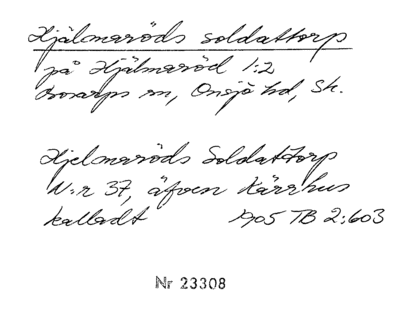 Hjälmaröds soldattorp
på Hjälmaröd 1:2
Bosarps sn, Onsjö hd, Sk.
Hjelmaröds Soldattorp
N:r 37, äfven Kärrhus
kalladt 1905 TB 2:603
Nr 23308